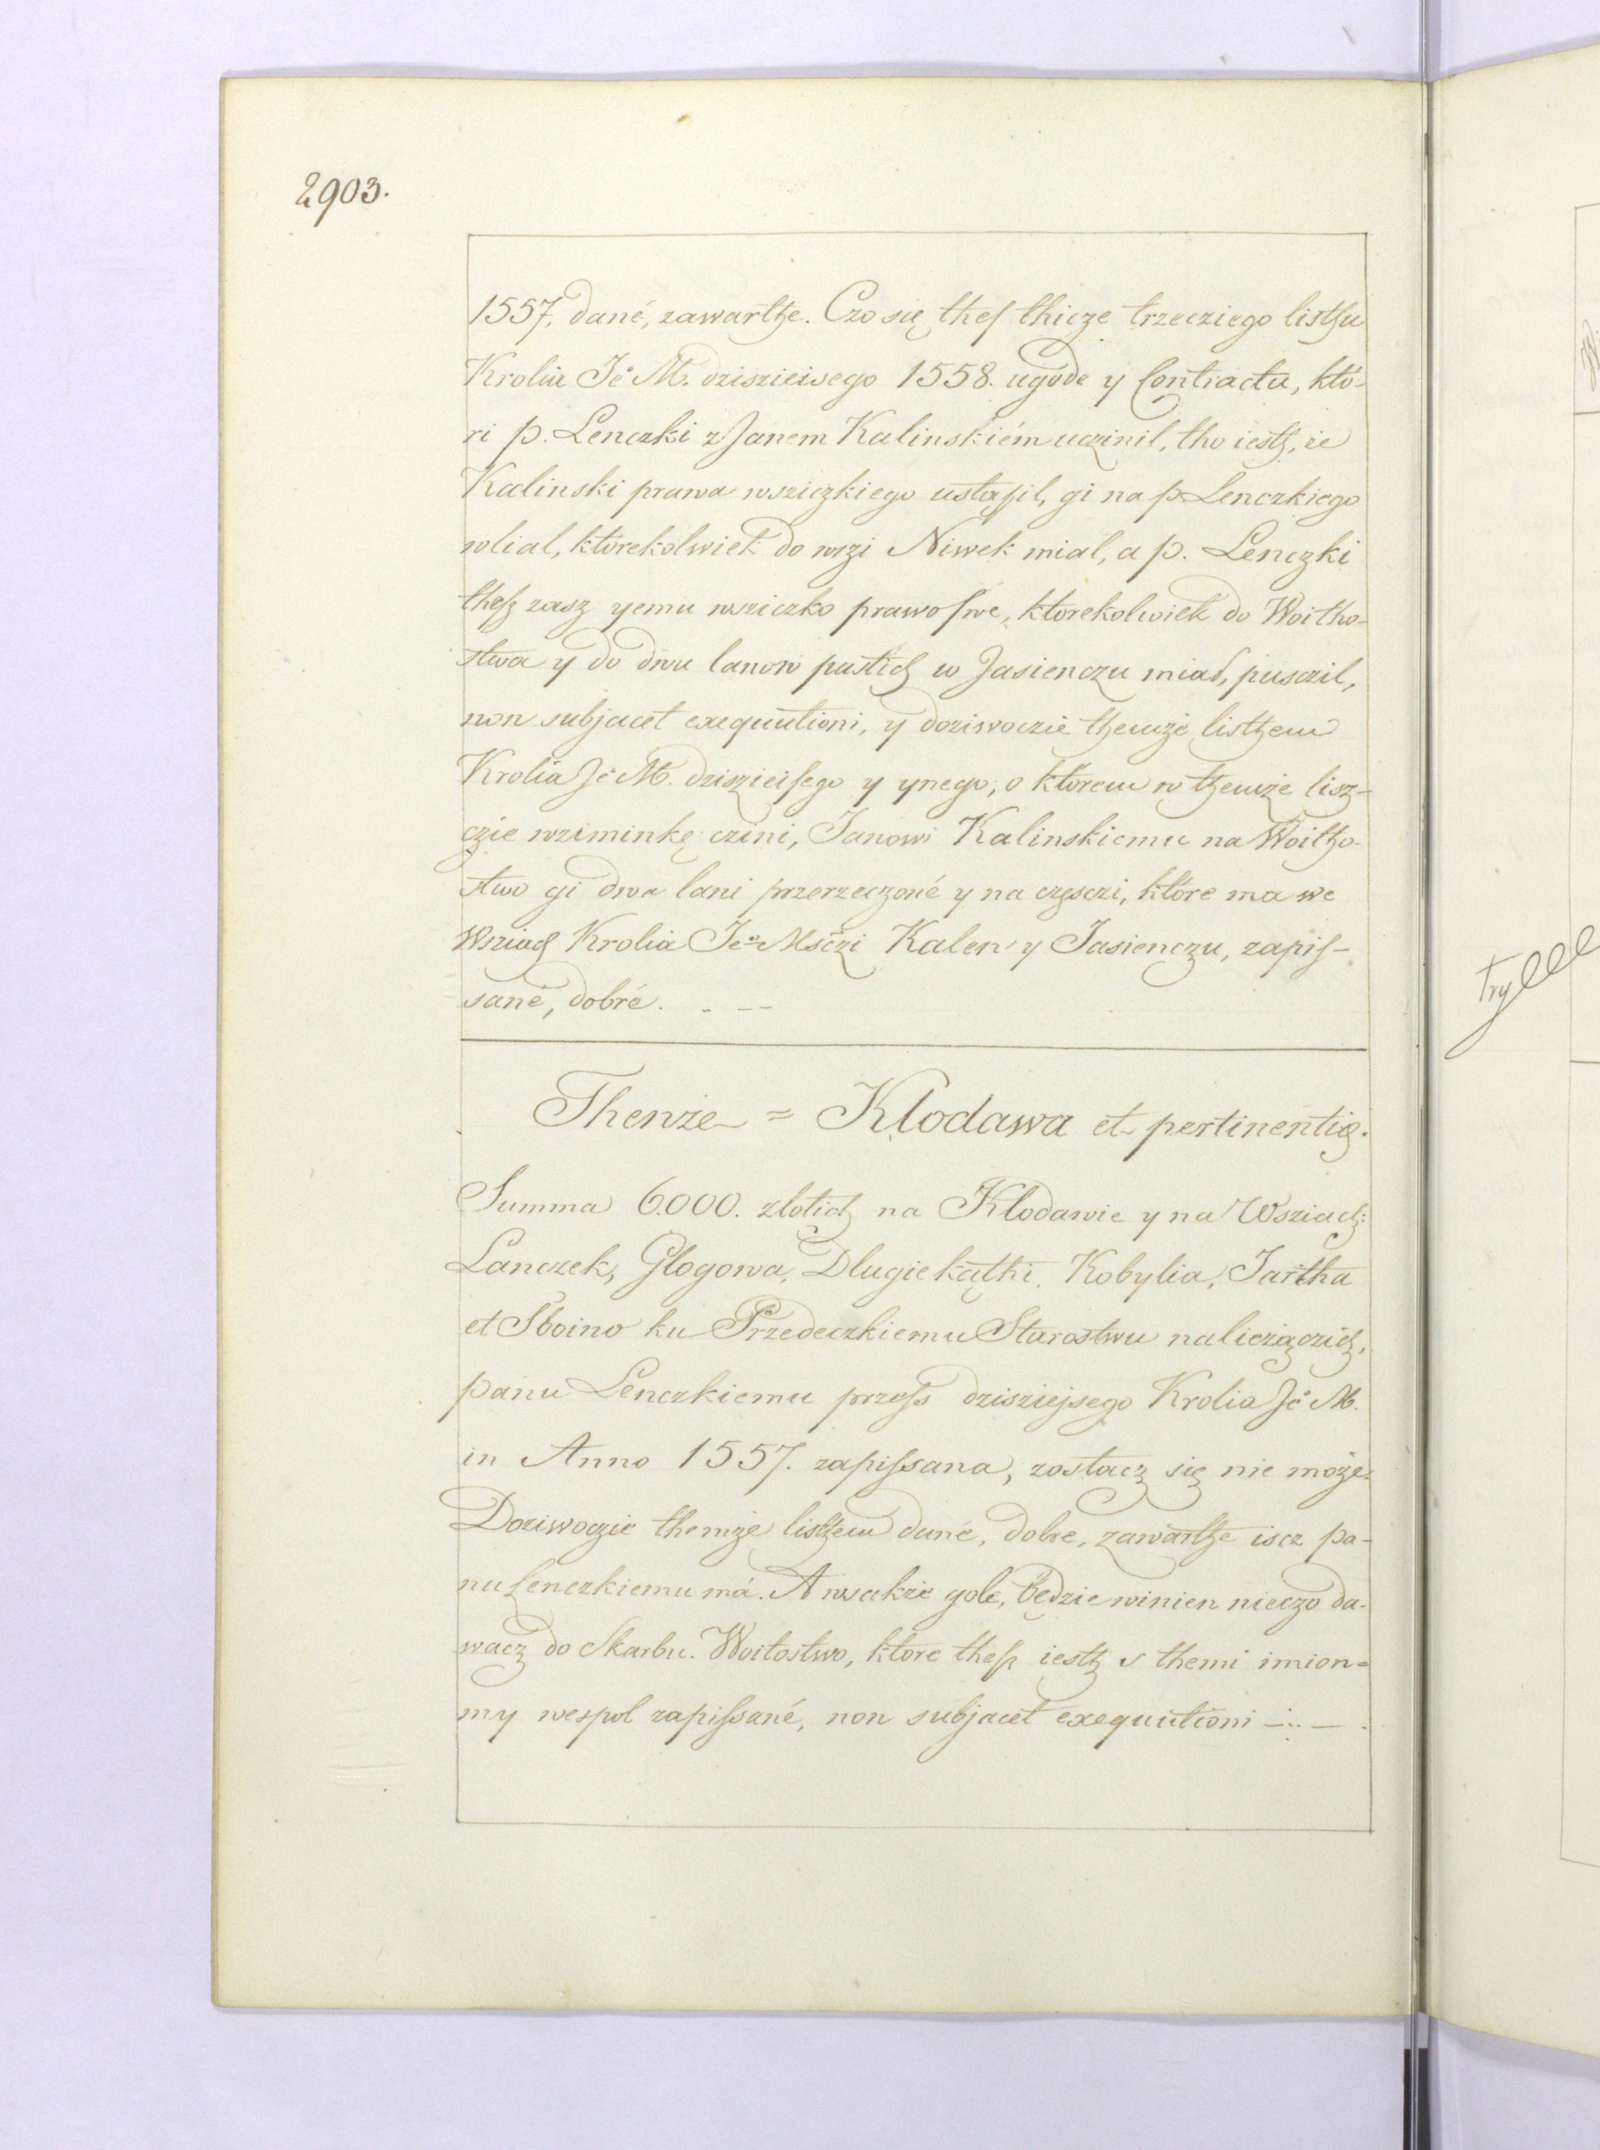 2903.
1557. dané, zawarthe. Czo się thesz thicze trzecziego listhu
Krolia Jé M. dziszieisego 1558. ugode y Contractu, któ-
ri p. Lenczki z Janem Kalinskiém uczinil, tho iesth, że
Kalinski prawa wsziczkiego ustąpil, gi na p. Lenczkiego
wlial, ktorekolwiek do wszi Niwek mial, a p. Lenczki
thesz zasz yemu wsziczko prawo swe, ktorekolwiek do Woitho-
stwa y do dwu lanow pustich w Jasienczu miał, pusczil,
non subjacet exequutioni, y doziwoczie themże listhem
Krolia Jé M. dziszieisego y ynego, o ktorem w themże lisz-
czie wzminkę czini, Janowi Kalinskiemu na Woitho-
stwo gi dwa lani przerzeczoné y na częsczi, które ma we
Wsziach Krolia Jeº Msczi Kalen y Jasienczu, zapis-
sané, dobré. . —
Thenże = Kłodawa et pertinentię.
Summa 6.000. zlotich na Klodawie y na Wsziach:
Lanczek, Glogowa, Dlugie kąthi, Kobylia, Jartha
et Sboino ku Przedeczkiemu Starostwu naliczączich,
panu Lenczkiemu przess dzisziejsego Krolia Jé M.
in Anno 1557. zapissana, zostacz się nie może.
Doziwoczie themże listhem dané, dobre, zawarthe iscz pa-
nu Lenczkiemu má. A wsakże gole, będzie winien nieczo da-
wacz do Skarbu. Woitostwo, ktore thesz iesth s themi imion-
my wespol zapissané, non subjacet exequutioni —
try